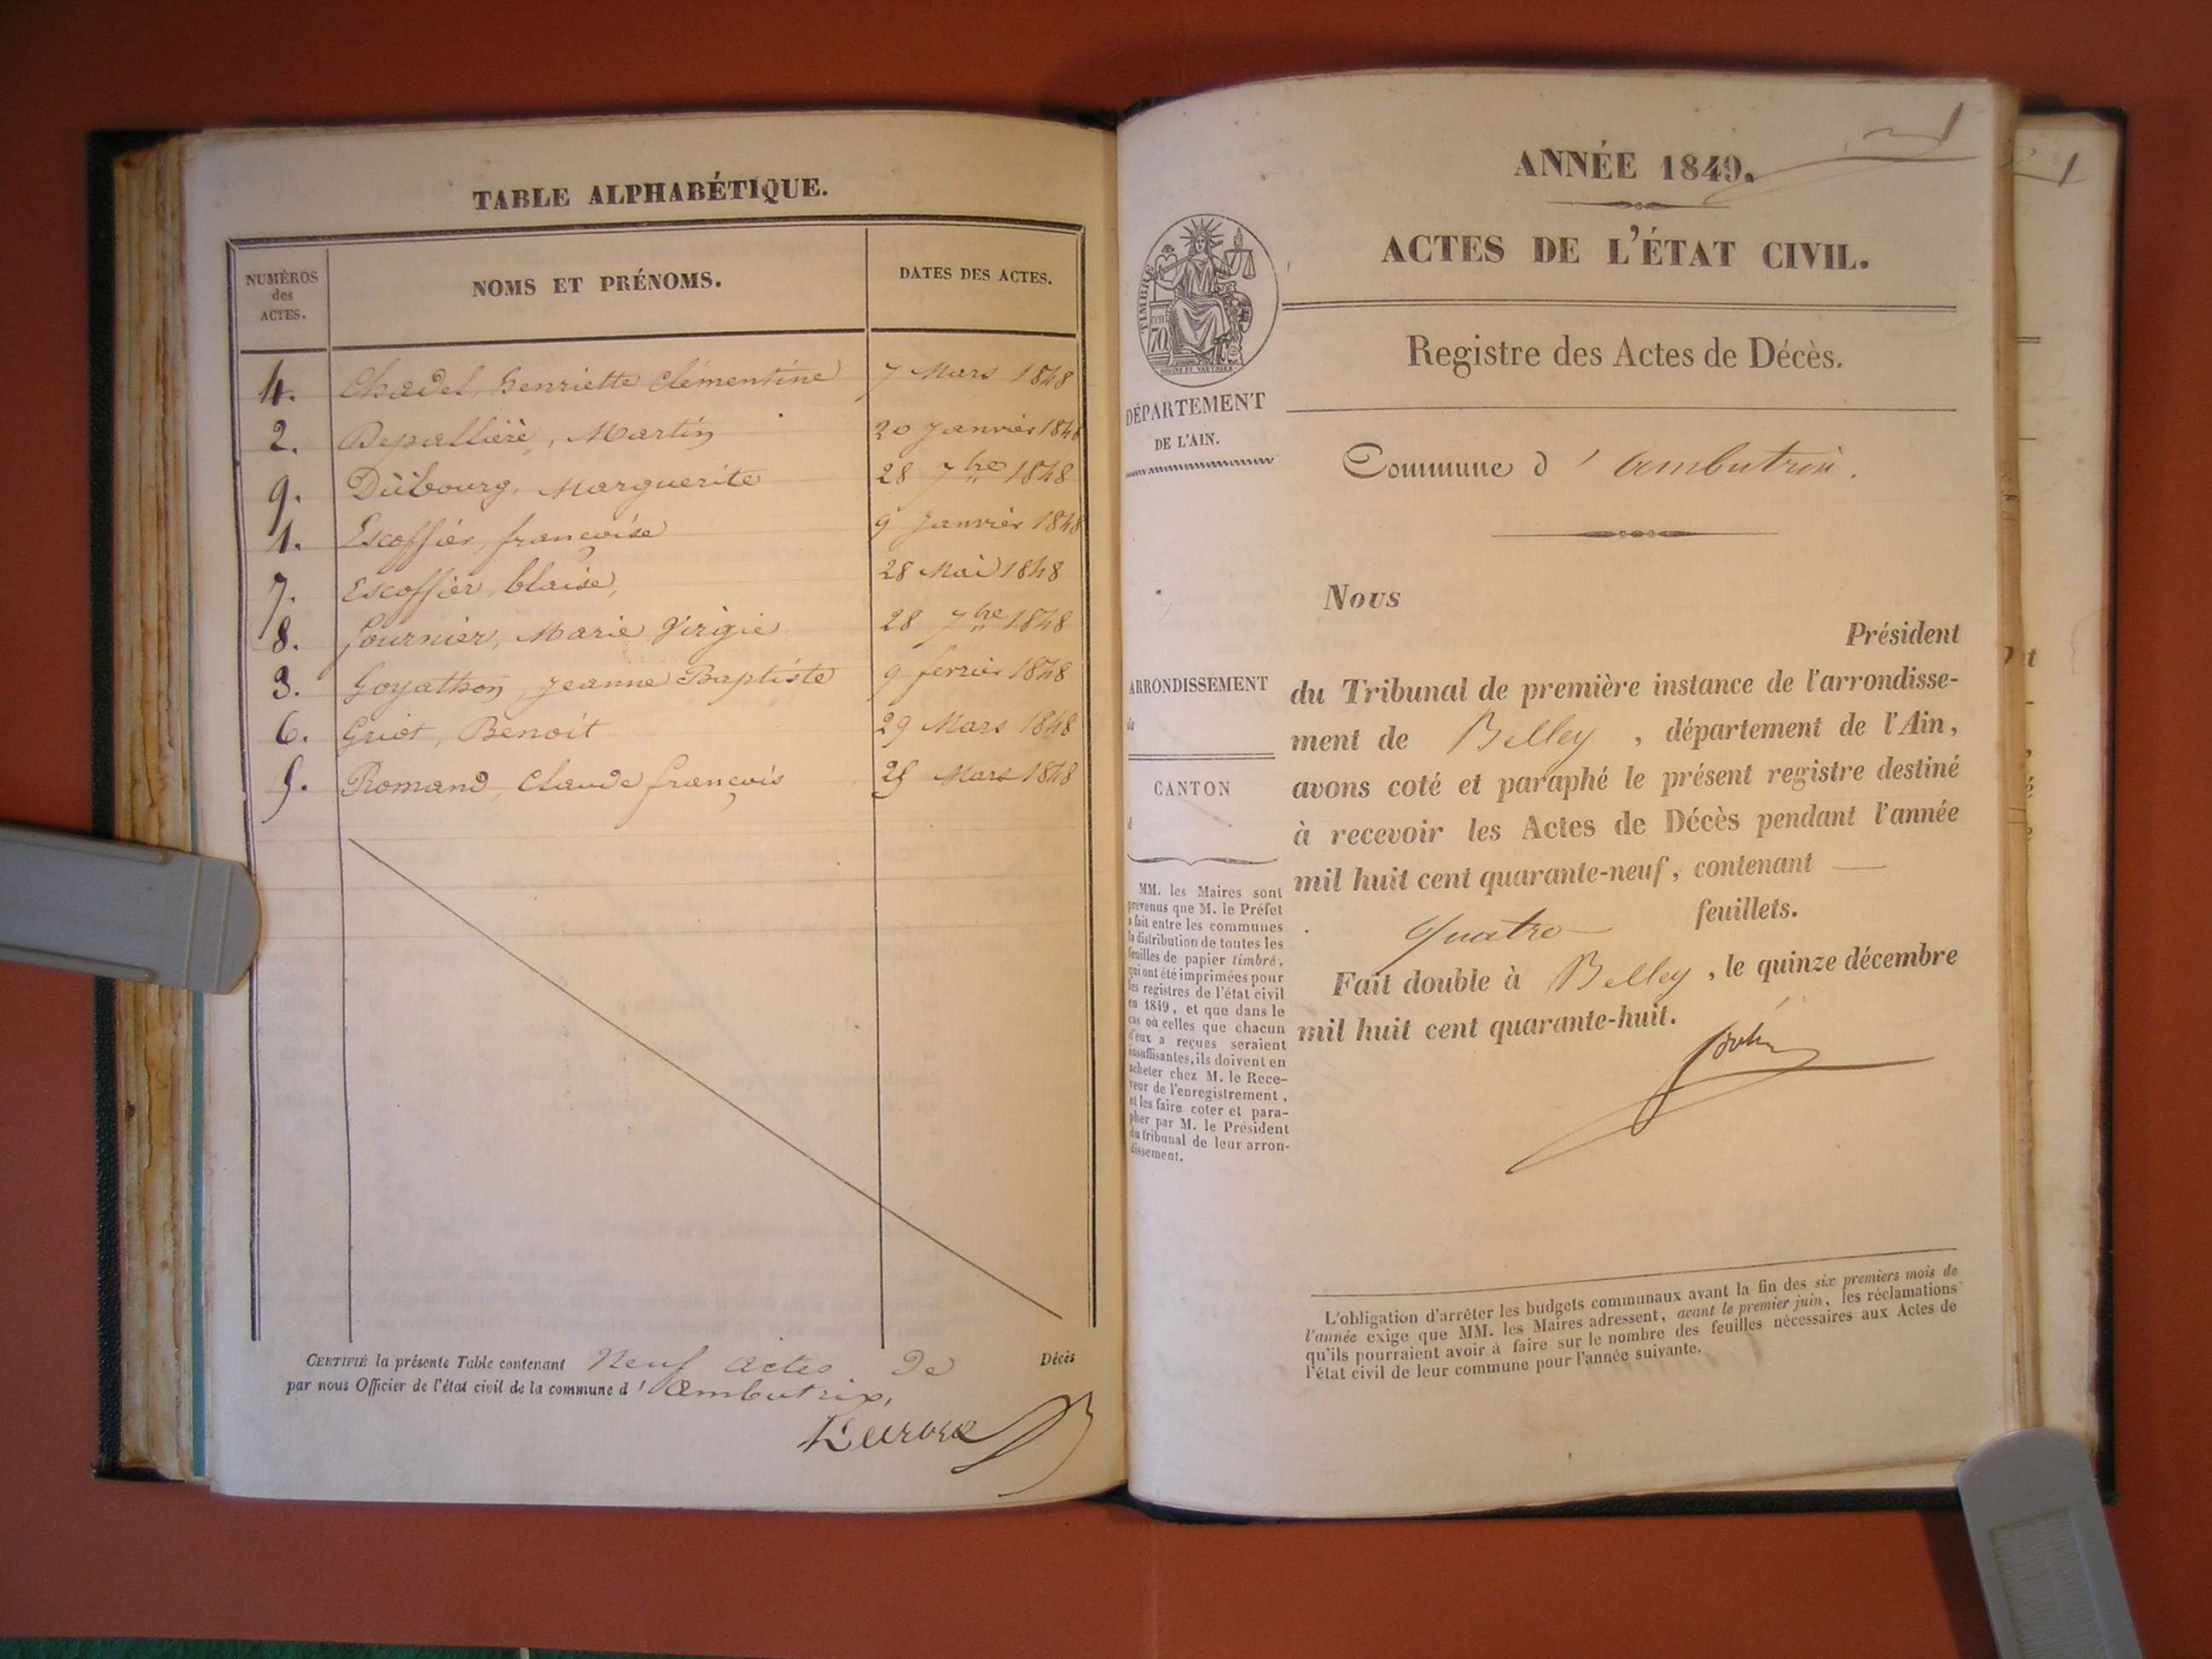 TABLE ALPHABÉTIQUE.
NUMÉROS des ACTES. NOMS ET PRÉNOMS. DATES DES ACTES.
4. Chadel, henriette Clémentine 7 Mars 1848
2. Depallière, Martin 20 Janvier 1848
9. Dubourg, Marguerite 28 7bre 1848
1. Escoffier, françoise 9 Janvier 1848
7. Escoffier, blaise, 28 Mai 1848
8. fournier, Marie Virgie 28 7bre 1848
3. Goyathon, Jeanne Baptiste 9 fevrier 1848
6. Griot, Benoit 29 Mars 1848
5. Romand, Claude françois 25 Mars 1848
CERTIFIÉ la présente Table contenant Neuf actes de Décès
par nous Officier de l'état civil de la commune d'Ambutrix,
ANNÉE 1849.
ACTES DE L'ÉTAT CIVIL.
TIMBRE
70
Registre des Actes de Décès.
DÉPARTEMENT
DE L'AIN.
Commune d'Ambutrix.
Nous
Président
du Tribunal de première instance de l'arrondisse-
ment de Belley, département de l'Ain,
avons coté et paraphé le présent registre destiné
à recevoir les Actes de Décès pendant l'année
mil huit cent quarante-neuf, contenant —
Quatre feuillets.
Fait double à Belley, le quinze décembre
mil huit cent quarante-huit.
ARRONDISSEMENT
de
CANTON
d
MM. les Maires sont
prévenus que M. le Préfet
a fait entre les communes
la distribution de toutes les
feuilles de papier timbré,
qui ont été imprimées pour
les registres de l'état civil
en 1849, et que dans le
cas où celles que chacun
d'eux a reçues seraient
insuffisantes, ils doivent en
acheter chez M. le Rece-
veur de l'enregistrement,
et les faire coter et para-
pher par M. le Président
du tribunal de leur arron-
dissement.
L'obligation d'arrêter les budgets communaux avant la fin des six premiers mois de
l'année exige que MM. les Maires adressent, avant le premier juin, les réclamations
qu'ils pourraient avoir à faire sur le nombre des feuilles nécessaires aux Actes de
l'état civil de leur commune pour l'année suivante.